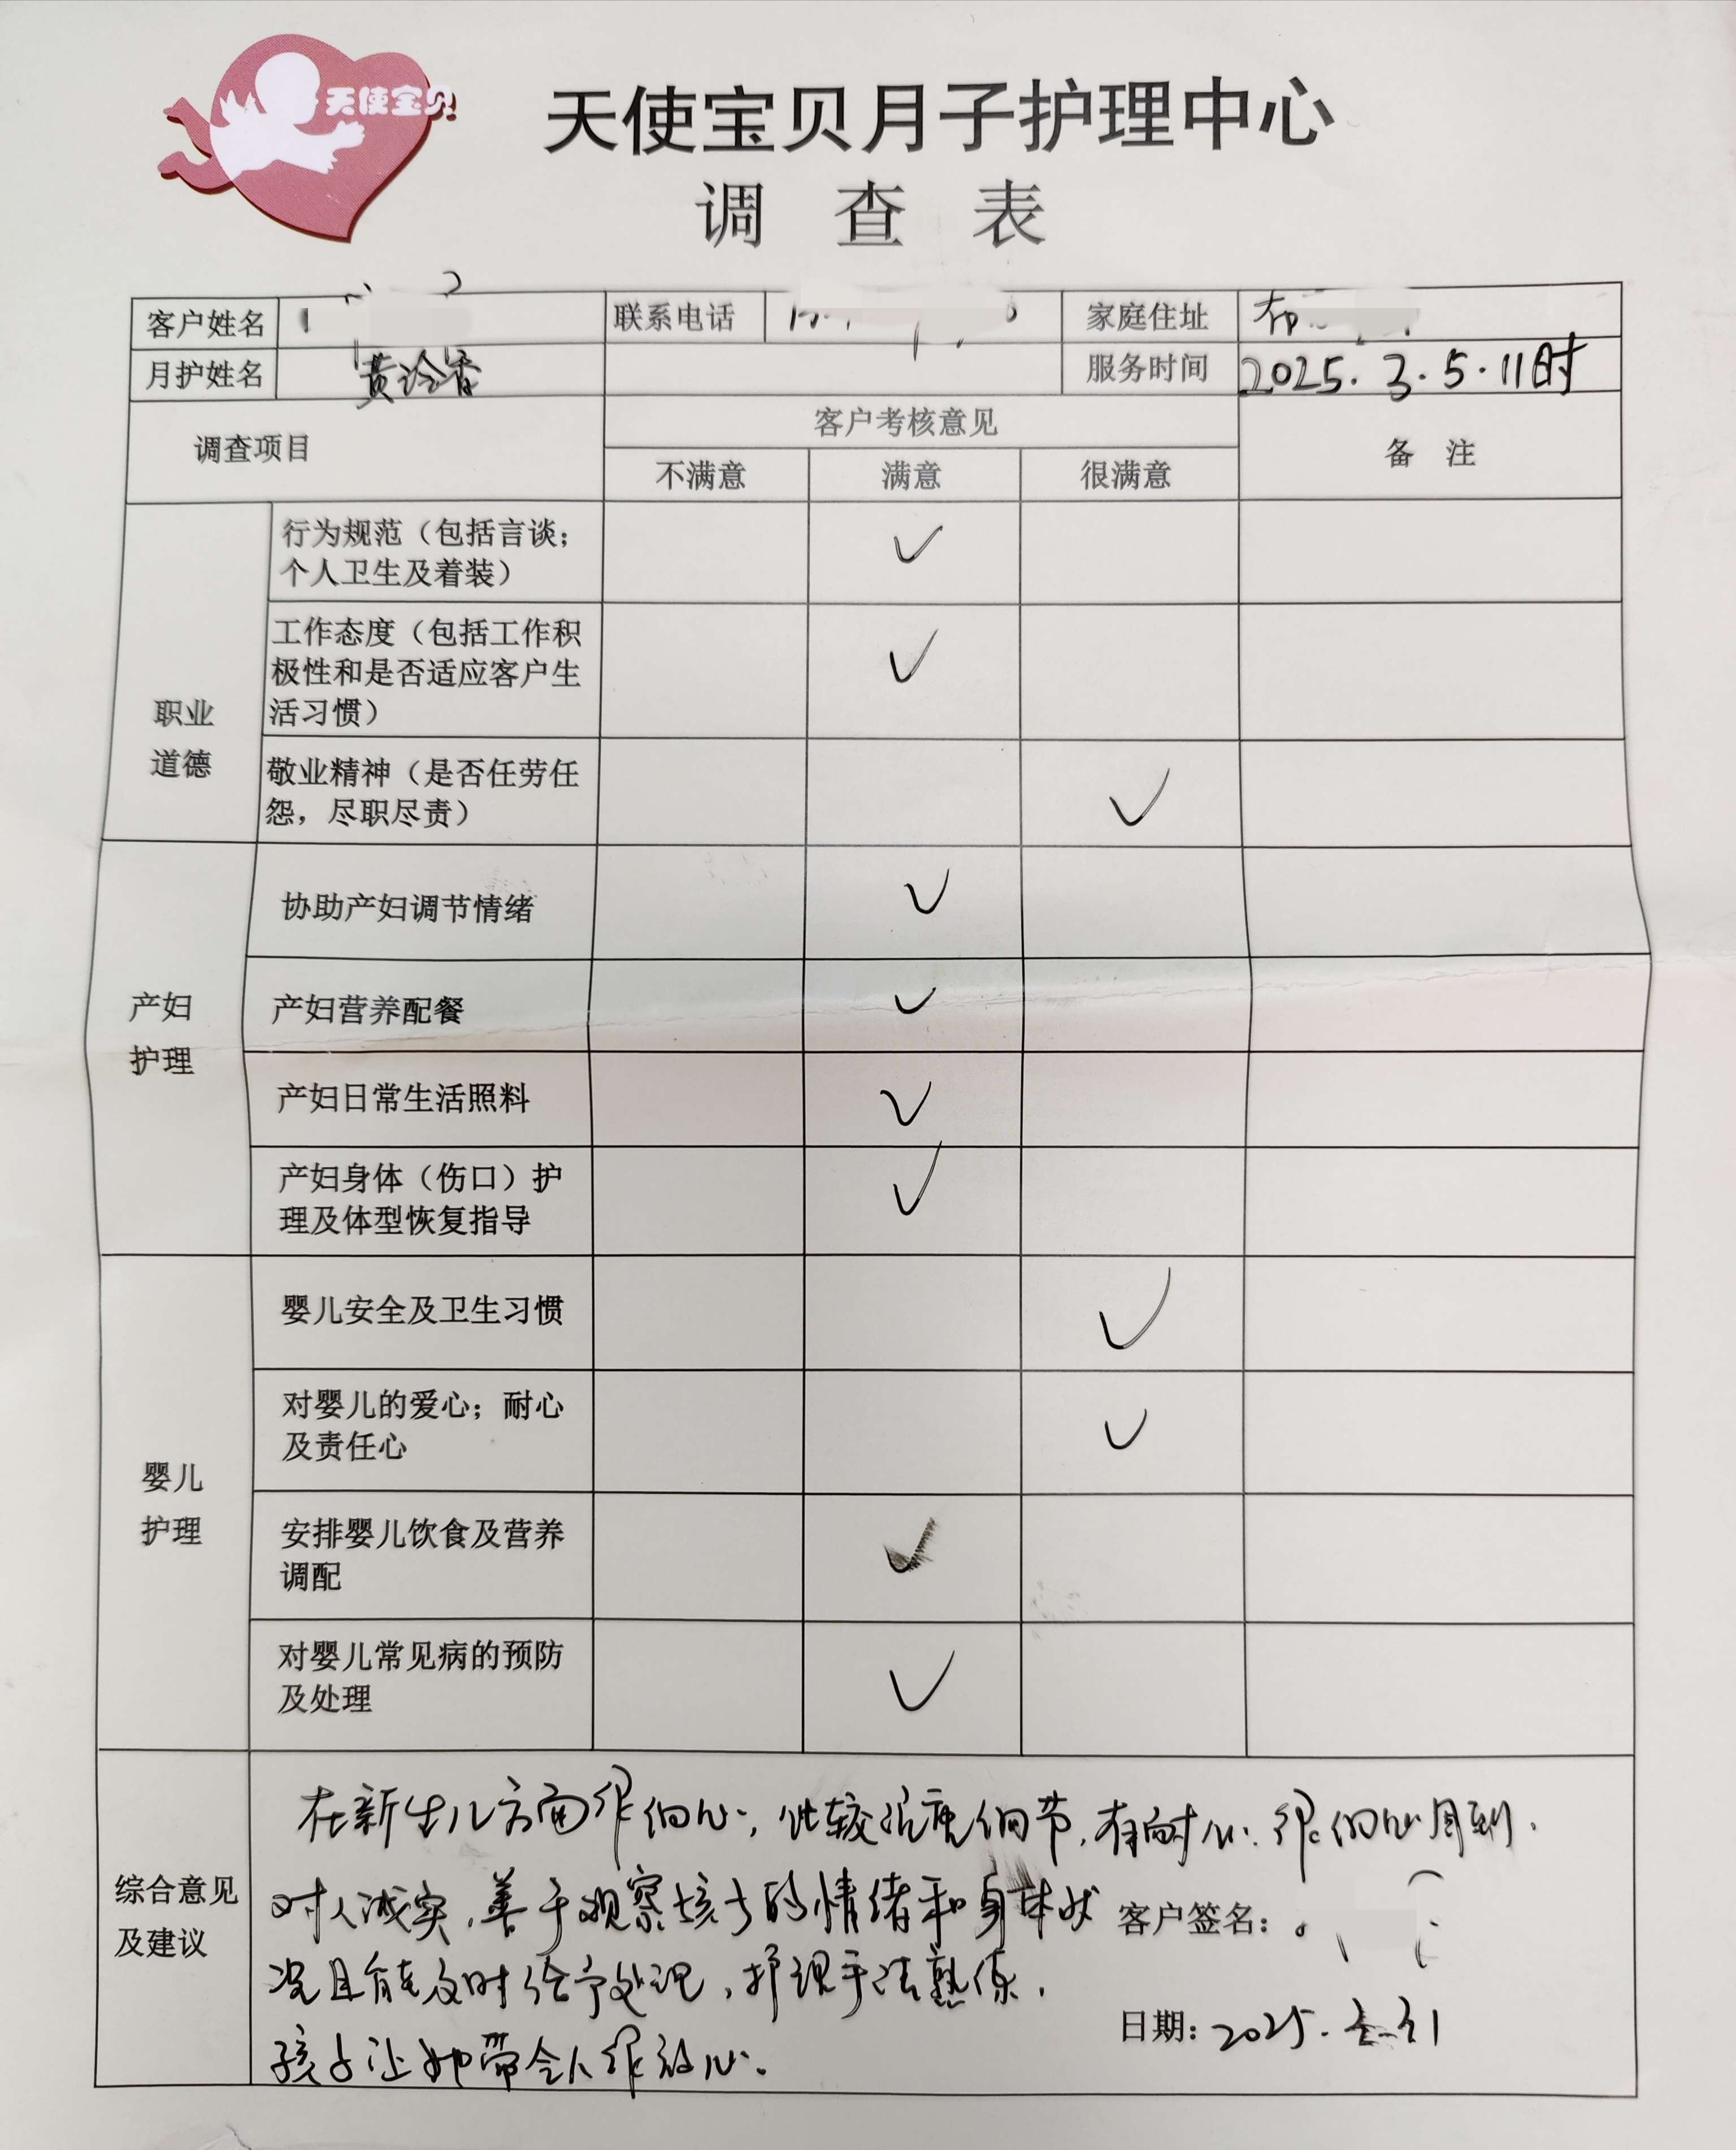 天使宝贝
天使宝贝月子护理中心
调 查 表
客户姓名 联系电话 家庭住址
月护姓名 黄泠香 服务时间 2025.3.5.11时
调查项目 客户考核意见 备 注
不满意 满意 很满意
职业
道德
行为规范（包括言谈；
个人卫生及着装） ✓
工作态度（包括工作积
极性和是否适应客户生
活习惯） ✓
敬业精神（是否任劳任
怨，尽职尽责） ✓
产妇
护理
协助产妇调节情绪 ✓
产妇营养配餐 ✓
产妇日常生活照料 ✓
产妇身体（伤口）护
理及体型恢复指导 ✓
婴儿
护理
婴儿安全及卫生习惯 ✓
对婴儿的爱心；耐心
及责任心 ✓
安排婴儿饮食及营养
调配 ✓
对婴儿常见病的预防
及处理 ✓
综合意见
及建议
在新生儿方面很细心，比较注重细节，有耐心.很细心周到.
对人诚实，善于观察孩子的情绪和身体状
况且能及时给予处理，护理手法熟练.
孩子让她带令人很放心。
客户签名：
日期：2025.